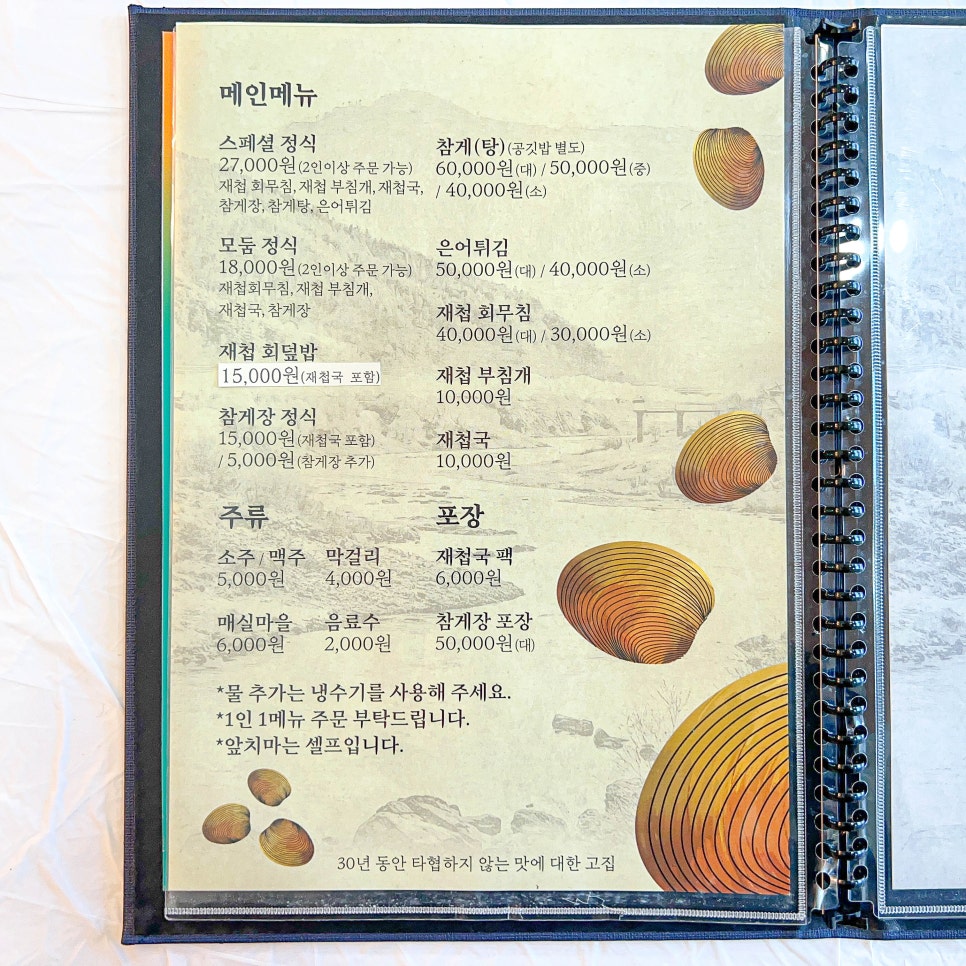 메인메뉴
스페셜 정식
27,000원(2인이상 주문 가능)
재첩 회무침, 재첩 부침개, 재첩국,
참게장, 참게탕, 은어튀김
모둠 정식
18,000원(2인이상 주문 가능)
재첩회무침, 재첩 부침개,
재첩국, 참게장
재첩 회덮밥
15,000원(재첩국 포함)
참게장 정식
15,000원(재첩국 포함)
/ 5,000원(참게장 추가)
참게(탕)(공깃밥 별도)
60,000원(대) / 50,000원(중)
/ 40,000원(소)
은어튀김
50,000원(대) / 40,000원(소)
재첩 회무침
40,000원(대) / 30,000원(소)
재첩 부침개
10,000원
재첩국
10,000원
주류
소주 / 맥주 막걸리
5,000원 4,000원
매실마을 음료수
6,000원 2,000원
포장
재첩국 팩
6,000원
참게장 포장
50,000원(대)
*물 추가는 냉수기를 사용해 주세요.
*1인 1메뉴 주문 부탁드립니다.
*앞치마는 셀프입니다.
30년 동안 타협하지 않는 맛에 대한 고집